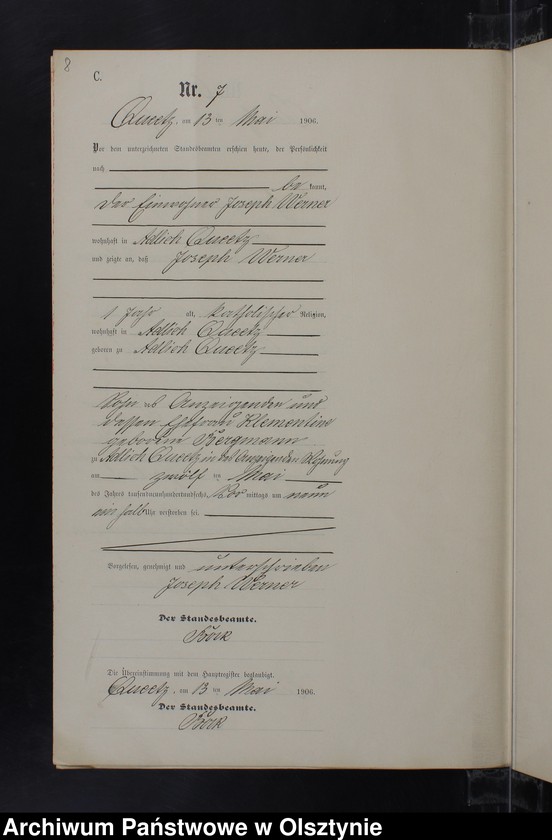 8
C.
Nr. 7
Queetz, am 13 ten Mai 1906.
Vor dem unterzeichneten Standesbeamten erschien heute, der Persönlichkeit
nach
be kannt,
der Einwohner Joseph Werner
wohnhaft in Adlich Queetz
und zeigte an, daß Joseph Werner
1 Jahr alt, katholischer Religion,
wohnhaft in Adlich Queetz
geboren zu Adlich Queetz
Sohn des Anzeigenden und
dessen Ehefrau Klementine
geborene Bergmann
zu Adlich Queetz in des Anzeigenden Wohnung
am zwölf ten Mai
des Jahres tausendneunhundertundsechs, Vor mittags um neun
ein halb Uhr verstorben sei.
Vorgelesen, genehmigt und unterschrieben
Joseph Werner
Der Standesbeamte.
Börk
Die Übereinstimmung mit dem Hauptregister beglaubigt.
Queetz, am 13 ten Mai 1906.
Der Standesbeamte.
Börk
Archiwum Państwowe w Olsztynie